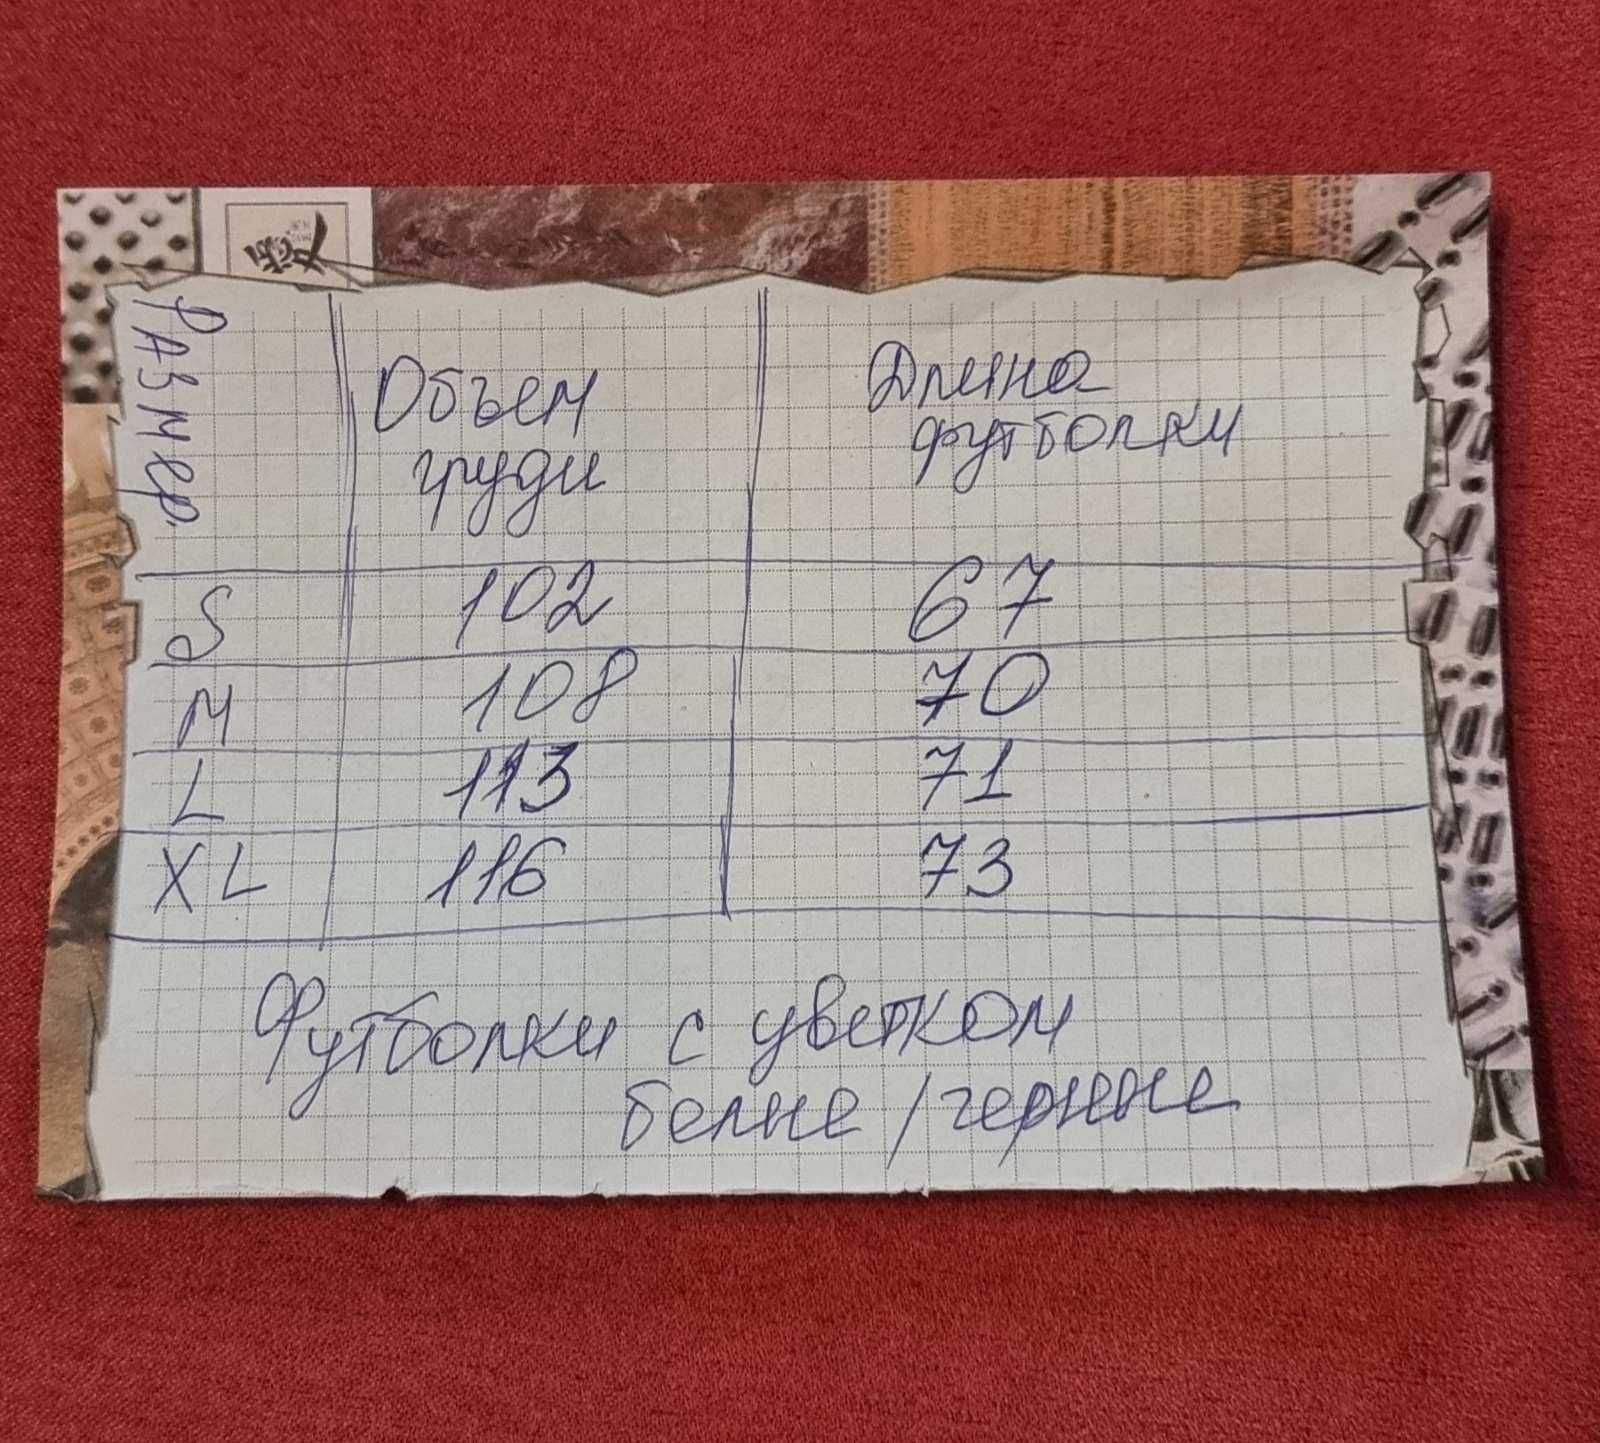 Размер. Объем Длина
груди футболки
S 102 67
M 108 70
L 113 71
XL 116 73
Футболки с цветком
белые / черные